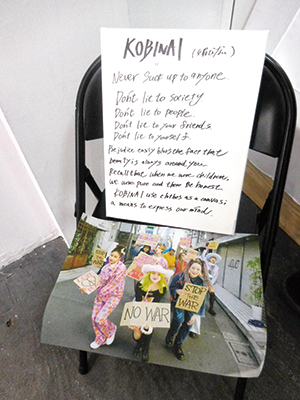 KOBINAI
Never Suck up to anyone.
Don't lie to society
Don't lie to people.
Don't lie to your friends
Don't lie to yourself.
Prejudice easily blurs the fact that
beauty is always around you.
Recall that when we were children,
we were pure and there be honest.
KOBINAI use clothes as a canvas
a means to express our mind.
NO WAR
STOP
WAR